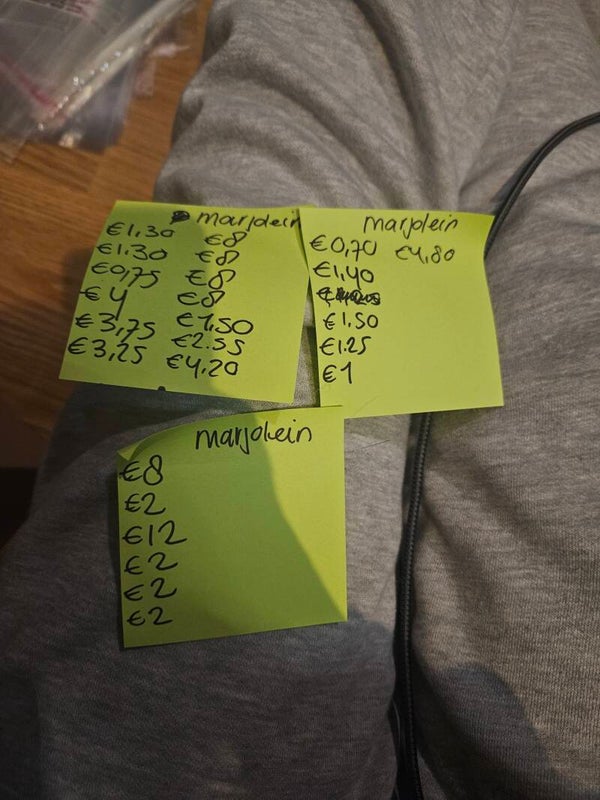 marjolein
€1,30
€1.30
€0,75
€4
€3,75
€3,25
€8
€8
€8
€8
€1,50
€2.55
€4,20
marjolein
€0,70
€1,40
€1.50
€1.25
€1
€4,80
marjolein
€8
€2
€12
€2
€2
€2